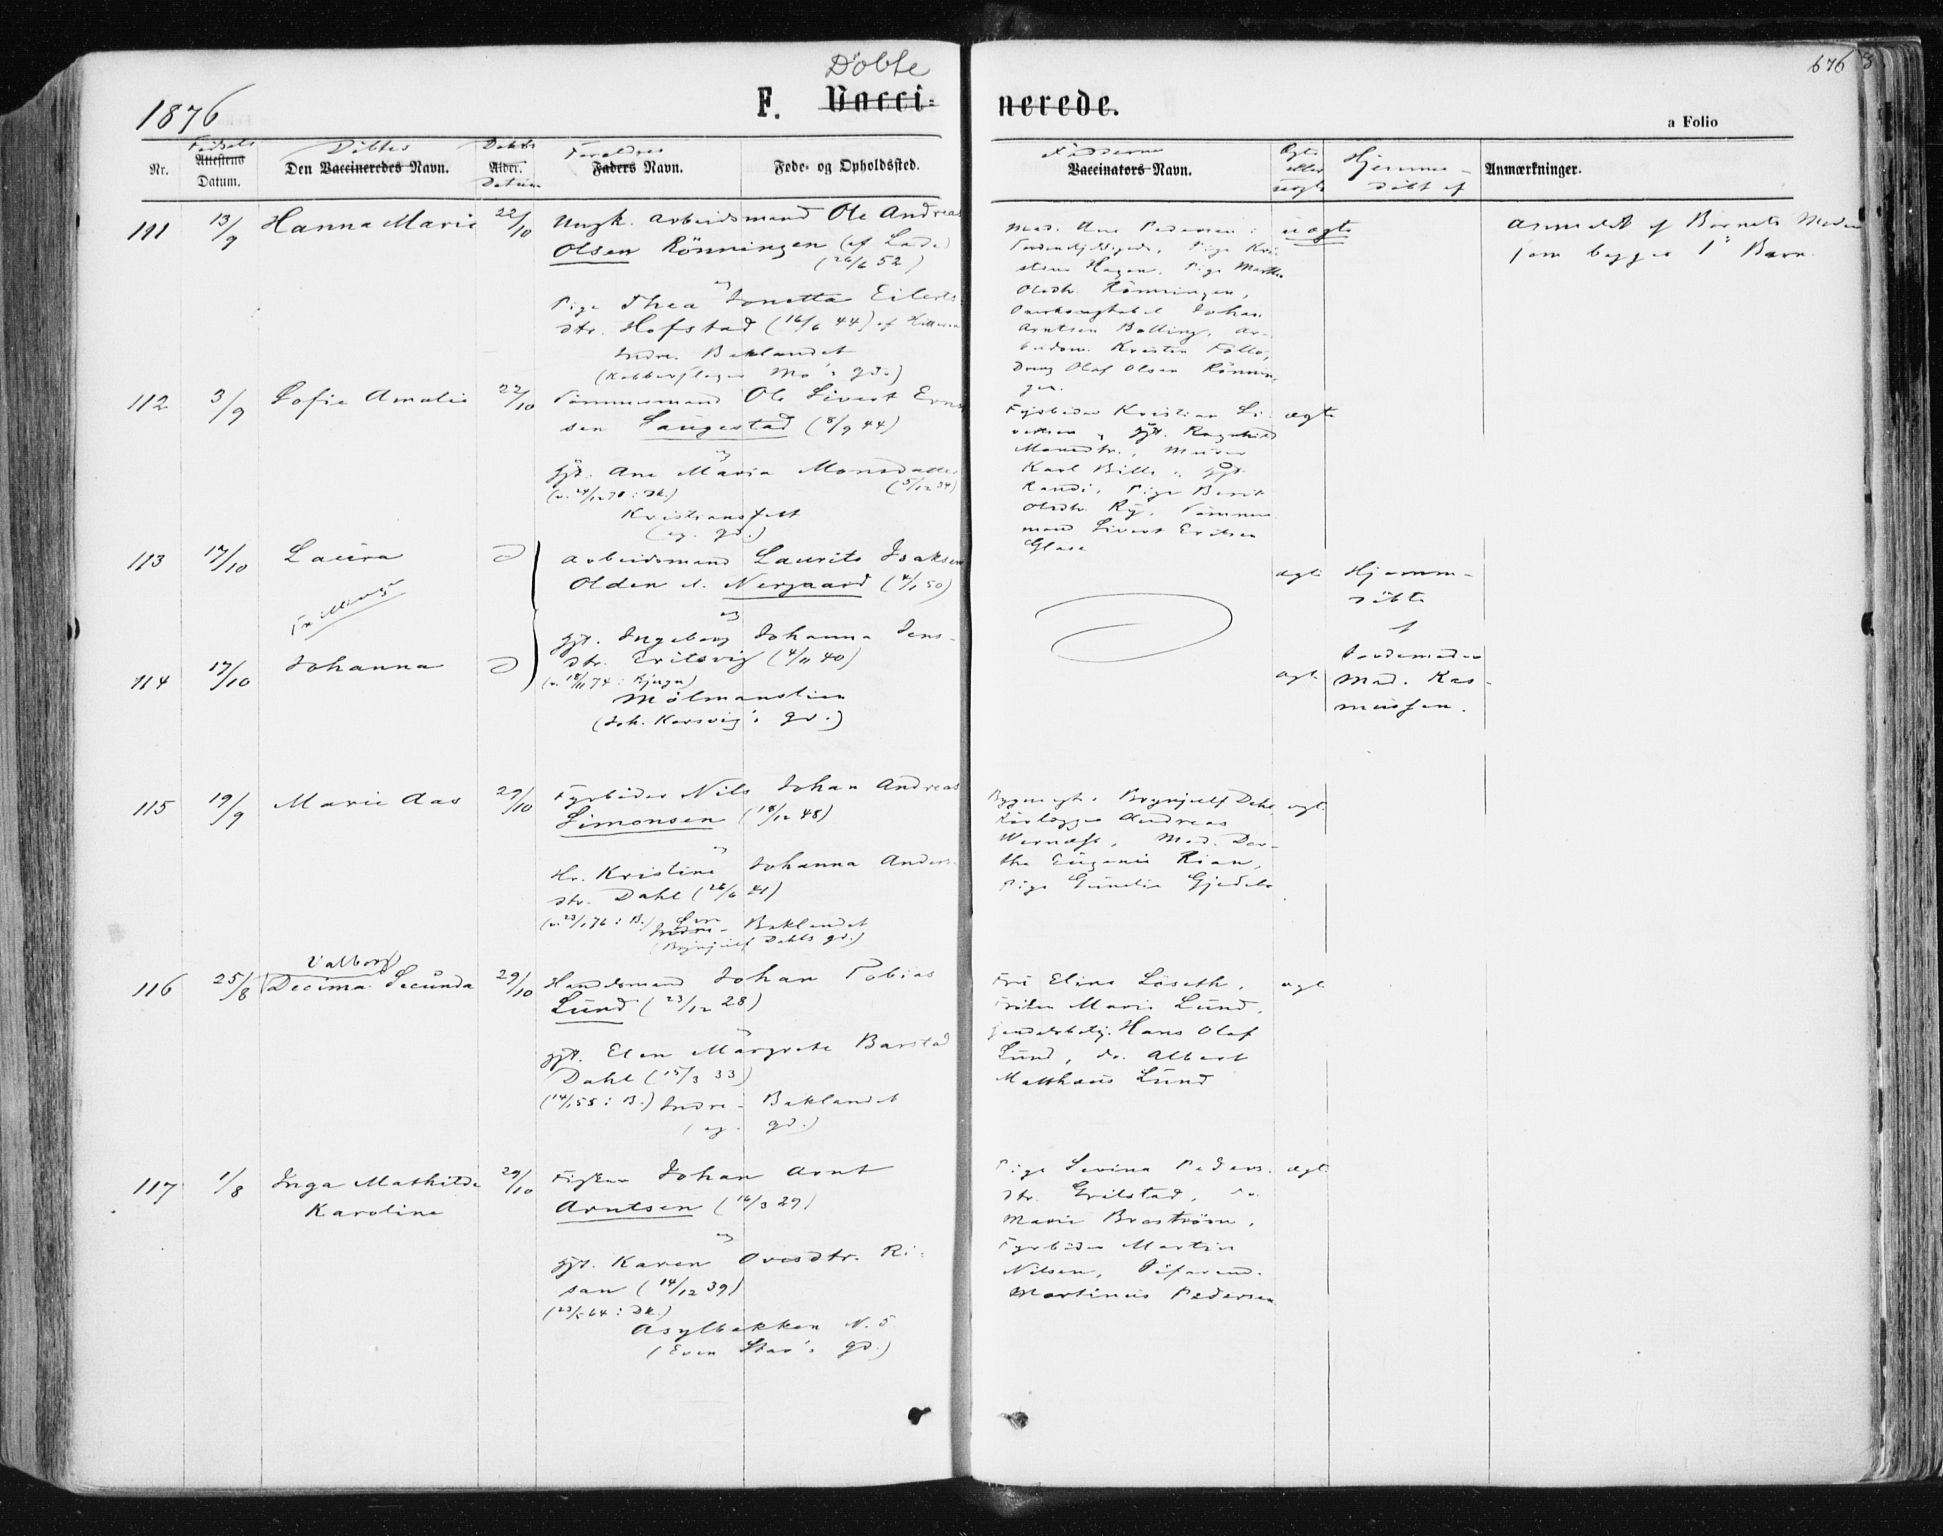 1876
Döbte
F. Vacci-
nerede.
676
a Folio
Nr.
Fødsels
Attestens
Datum.
Döbtes
Den Vaccineredes Navn.
Daabs
Alder.
Datum
Foraldres
Faders Navn.
Føde- og Opholdssted.
Fadderne
Vaccinators Navn.
Ægte
eller
uægte
Hjemme-
döbt af
Anmærkninger.
111 13/9 Hanna Marie 22/10
Ungk. Arbeidsmand Ole Andreas
Olsen Rönningen (af Lade)
(26/6 52)
og
Pige Thea Jonetta Eilerts-
dtr. Hofstad (16/6 44) af
Indre Baklandet
(Kobberslager Mo's gd.)
Mad. Ane Pedersen
Pige Kri-
stine Hagen, Pige Marth
Olsdtr. Rönningen,
Johan
Arntsen Balling, Ar-
beidsm. Kristen Follo,
Dreng Olaf Olsen Rönnin-
gen.
uægte
Anmeldt af Barnets Moder
som begges 1ste Barn.
112 3/9 Sofie Amalie 22/10
Tömmermand Ole Sivert Ern
sen Saugestad (8/9 44)
og
Hst. Ane Maria Monsdatter
(5/12 34)
Kristiansfelt
(eg. gd.)
Fyrböder Kristian Si-
vertsen, Hst. Ragnhild
Monsdtr., Murer
Karl Bille, Hst.
Randi, Pige Berit
Olsdtr. Ry, Tömmer-
mand Sivert Eriksen
Glase
ægte
113 17/10 Laura
Tvillinger
Arbeidsmand Laurits Isaksen
Olden el. Nergaard (4/1 50)
og
Hst. Ingeborg Johanna Jens-
dtr. Eritsvig (4/11 40)
(v. 18/11 74: Bjugn)
Mölmanslien
(Joh. Korsvig's gd.)
ægte
Hjemme-
döbte
af
Jordemoder
Mad. Ras-
mussen.
114 17/10 Johanna
ægte
115 19/9 Marie Aas 29/10
Fyrböder Nils Johan Andreas
Simonsen (18/12 48)
og
Hr. Kristine Johanna Anders-
dtr. Dahl (26/6 41)
(v. 23/1 76: B.) Indre Baklandet
(Brynjulf Dahls gd.)
Brynjulf Dahl,
Andreas
Mad. Dor-
thea Eugenie Rian,
Pige Gunelie Gjedebo
ægte
116 25/8 Valborg
Decima Secunda 29/10
Handelsmand Johan Tobias
Lund (23/12 28)
og
Hst. Elen Margrete Barstad
Dahl (15/3 33)
(14/1 55: B.) Indre Baklandet
(eg. gd.)
Fru Eline Löseth,
Fröken Marie Lund,
Handelsbetj. Hans Olaf
Lund, do. Albert
Matthæus Lund
ægte
117 1/8 Inga Mathilde
Karoline 29/10
Fisker Johan Arnt
Arntsen (16/3 29)
og
Hst. Karen Ovesdtr. Ri-
san (14/12 39)
(23/5 64: DK.)
Asylbakken N. 5
(Even Stav's gd.)
Pige Sevina Peders-
dtr. Grilstad, do.
Marie Broström,
Fyrböder Martin
Nilsen, Söfarend.
Martinus Pedersen
ægte